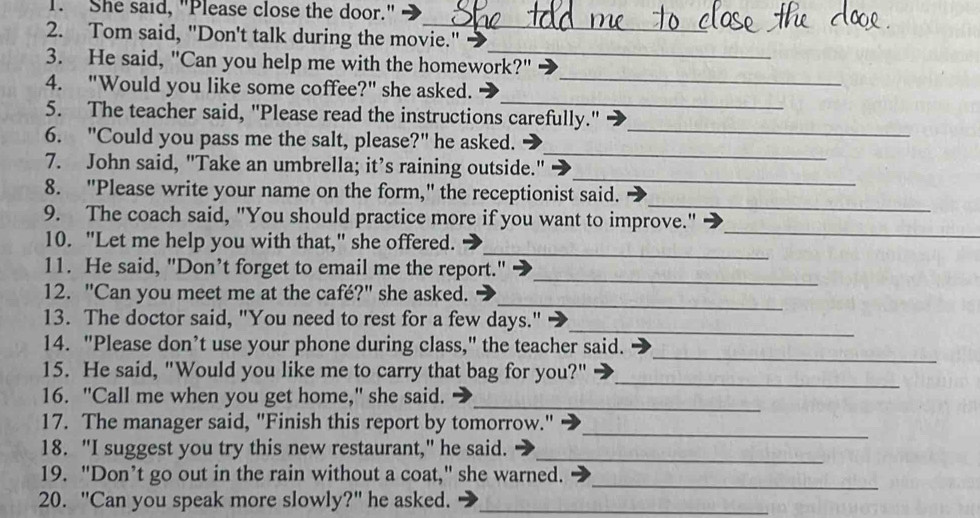 1. She said, "Please close the door." ➔ She told me to close the dooe.
2. Tom said, "Don't talk during the movie." ➔
3. He said, "Can you help me with the homework?" ➔
4. "Would you like some coffee?" she asked. ➔
5. The teacher said, "Please read the instructions carefully." ➔
6. "Could you pass me the salt, please?" he asked. ➔
7. John said, "Take an umbrella; it's raining outside." ➔
8. "Please write your name on the form," the receptionist said. ➔
9. The coach said, "You should practice more if you want to improve." ➔
10. "Let me help you with that," she offered. ➔
11. He said, "Don't forget to email me the report." ➔
12. "Can you meet me at the café?" she asked. ➔
13. The doctor said, "You need to rest for a few days." ➔
14. "Please don't use your phone during class," the teacher said. ➔
15. He said, "Would you like me to carry that bag for you?" ➔
16. "Call me when you get home," she said. ➔
17. The manager said, "Finish this report by tomorrow." ➔
18. "I suggest you try this new restaurant," he said. ➔
19. "Don't go out in the rain without a coat," she warned. ➔
20. "Can you speak more slowly?" he asked. ➔